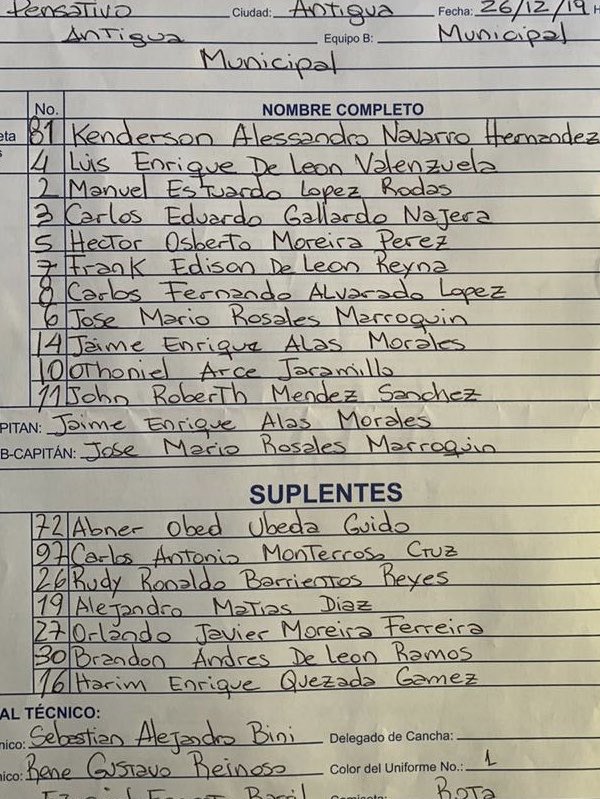 Pensativo Ciudad: Antigua Fecha: 26/12/19 H
Antigua Equipo B: Municipal
Municipal
No. NOMBRE COMPLETO
eta 81 Kenderson Alessandro Navarro Hernandez
s 4 Luis Enrique De Leon Valenzuela
2 Manuel Estuardo Lopez Rodas
3 Carlos Eduardo Gallardo Najera
5 Hector Osberto Moreira Perez
7 Frank Edison De Leon Reyna
8 Carlos Fernando Alvarado Lopez
6 Jose Mario Rosales Marroquin
14 Jaime Enrique Alas Morales
10 Othoniel Arce Jaramillo
11 John Roberth Mendez Sanchez
PITAN: Jaime Enrique Alas Morales
B-CAPITÁN: Jose Mario Rosales Marroquin
SUPLENTES
72 Abner Obed Ubeda Guido
97 Carlos Antonio Monterroso Cruz
26 Rudy Ronaldo Barrientos Reyes
19 Alejandro Matias Diaz
27 Orlando Javier Moreira Ferreira
30 Brandon Andres De Leon Ramos
16 Harim Enrique Quezada Gamez
AL TÉCNICO:
nico: Sebestian Alejandro Bini Delegado de Cancha:
nico: Rene Gustavo Reinoso Color del Uniforme No.: 1
Camiseta: Rota